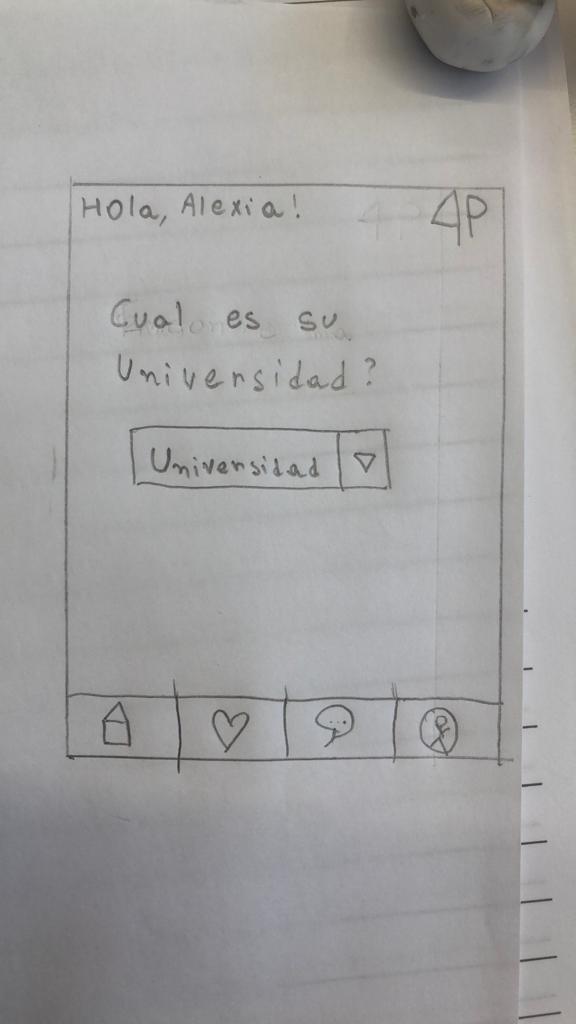 Hola, Alexia! 4P
Cual es su
Universidad?
Universidad